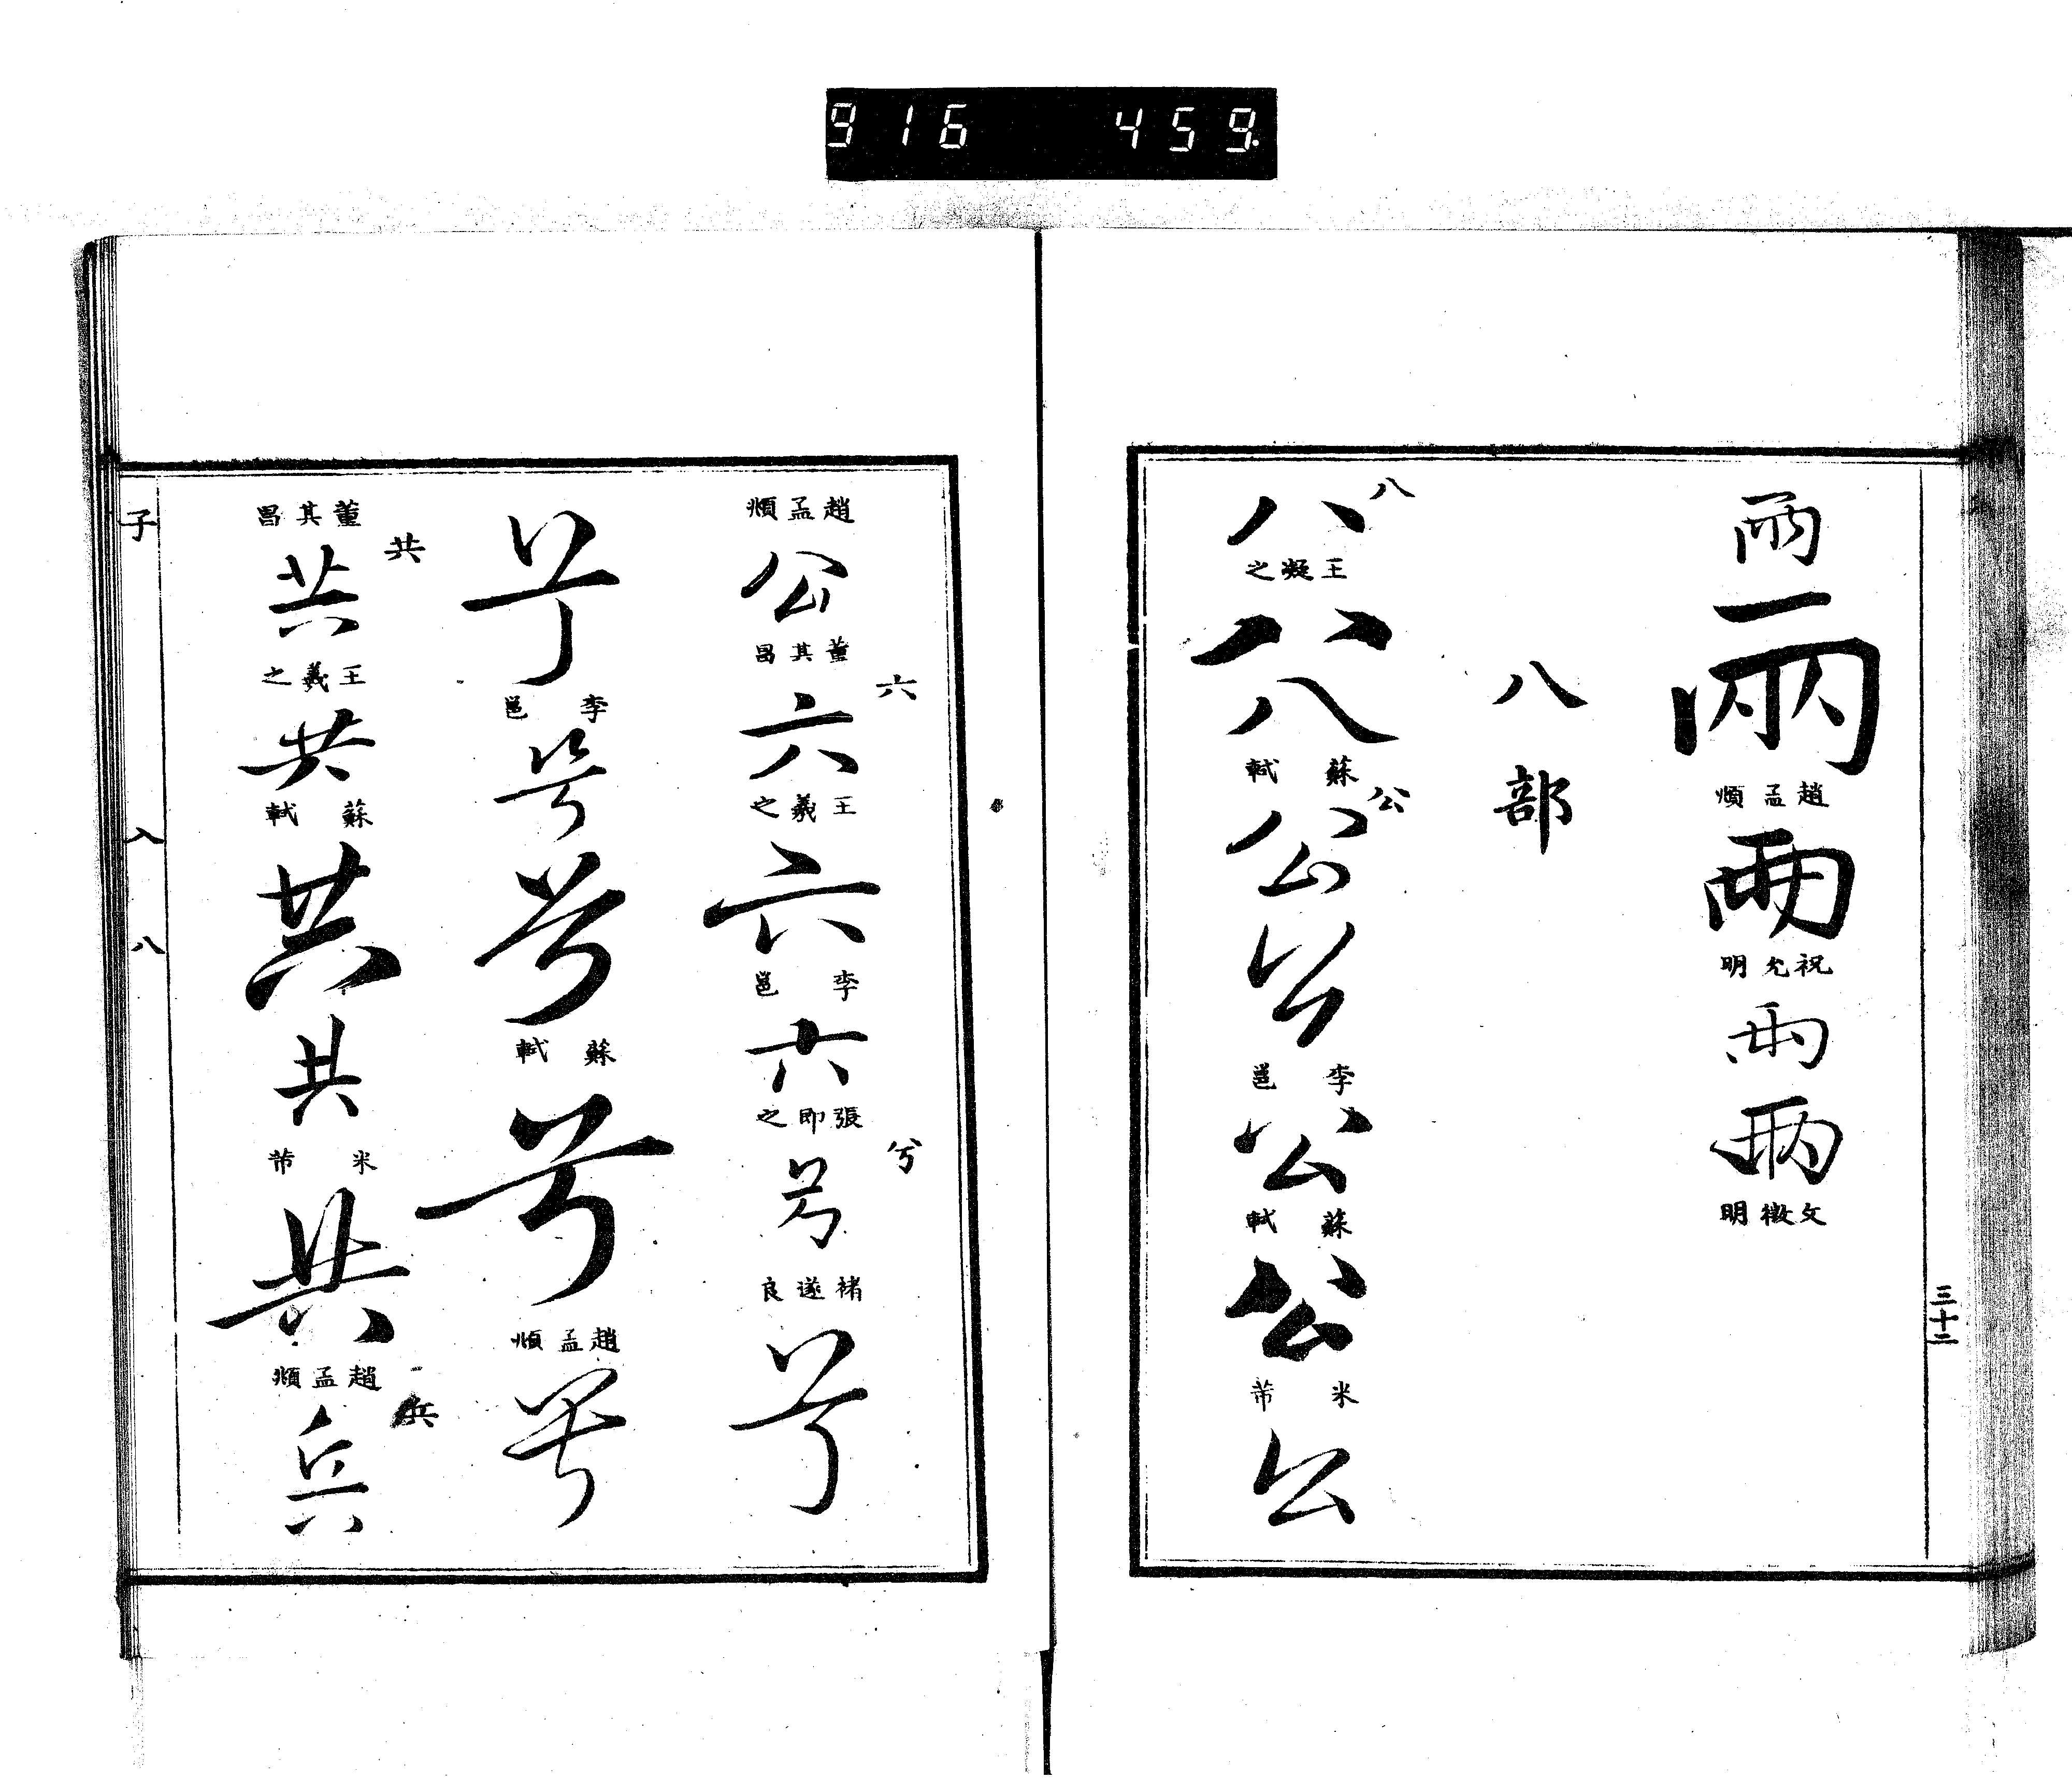 916 459
兩
兩
趙孟頫
兩
祝允明
兩
兩
文徵明
三十二
八部
八
八
王凝之
八
八
蘇軾
公
公
公
李邕
公
蘇軾
公
米芾
公
趙孟頫
公
董其昌
六
六
王羲之
六
李邕
六
張即之
兮
兮
褚遂良
兮
兮
李邕
兮
兮
蘇軾
兮
趙孟頫
兮
董其昌
共
共
王羲之
共
蘇軾
共
共
米芾
共
趙孟頫
兵
兵
子
入
八